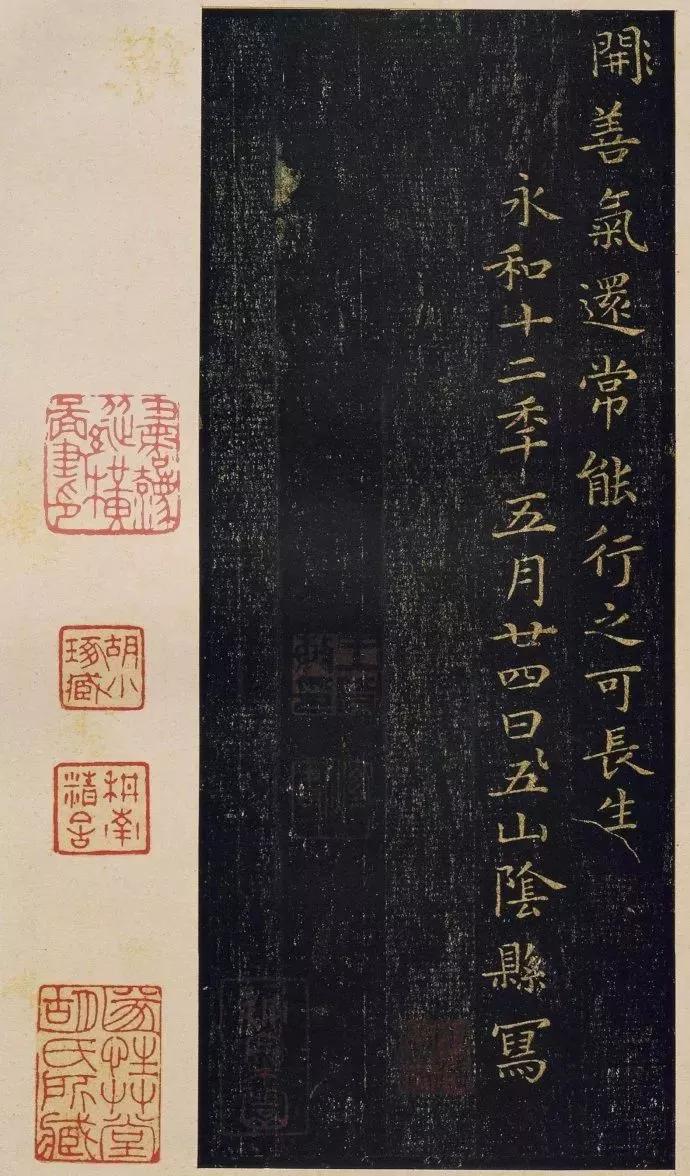 開善氣還常能行之可長生
永和十二秊五月廿四日五山陰縣寫
胡小琢藏
堂胡氏所藏